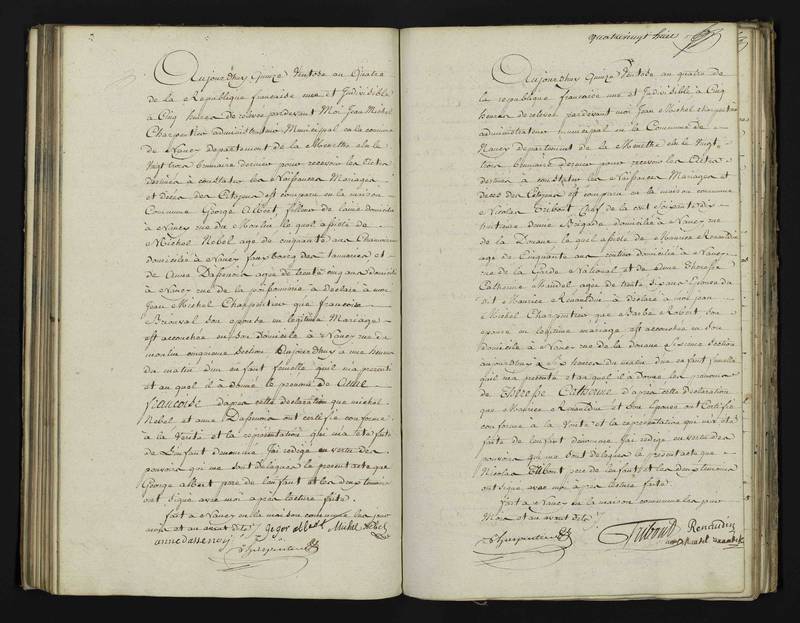 Aujourdhuy Quinze Ventose an Quatre
de la République francaise une et Indivisible
à Cinq heures de relevée pardevant Moi Jean Michel
Charpentier administrateur Municipal en la commune
de Nancy département de la Meurthe elu le
vingt trois brumaire dernier pour recevoir les Actes
destinés à constater les Naissances Mariages
et deces des Citoyens est comparu en la maison
Commune George Albert, fileur de laine domicilié
à Nancy rue du Moulin le quel assisté de
Michel Nobel age de cinquante ans Chamoiseur
domicilié à Nancy faux bourg des tanneries et
de Anne agée de trente cinq ans domicilié
à Nancy rue de la poissonnerie à déclaré à moi
Jean Michel Charpentier que francoise
son epouse en légitime Mariage
est accouchée en son domicile à Nancy rue du
moulin onzieme Section Aujourdhuy a une heure
du matin d'un enfant femelle quil ma presenté
et au quel il à donné le prenom de Anne
francoise dapres cette déclaration que michel
Nobel et anne ont certifié conforme
à la Verité et la représentation qui ma été faite
de L'enfant denommé Jai redigé en vertu des
pouvoirs qui me sont delegues le present acte que
George albert pere de lenfant et les deux temoins
ont signé avec moi après lecture faite.
fait à Nancy en la maison commune les jour
mois et an avant dits Michel Nobel
anne
Charpentier
quatrevingt
Aujourdhuy Quinze Ventose an quatre de
la republique francaise une et Indivisible à Cinq
heures de relevée pardevant moi Jean Michel charpentier
administrateur municipal en la Commune de
Nancy département de la Meurthe elu le Vingt
trois brumaire dernier pour recevoir les actes
destinés a constater les Naissances Mariages et
deces des Citoyens est comparu en la maison commune
Nicolas Tribout Chef de la cent soixante dix
huitieme demie Brigade domicilié à Nancy rue
de la Douane le quel assisté de Maurice
age de Cinquante ans domicilié à Nancy
rue de la Garde National et de Dame Theresse
Catherine agée de trente ans Epouse du
dit Maurice à déclaré à moi jean
Michel Charpentier que Barbe Robert son
epouse en legitime mariage est accouchée en son
domicile à Nancy rue de la Douane Section
aujourdhuy à heures du matin d'un enfant femelle
quil ma presenté et au quel il à donné les prenoms
de Theresse Catherine d'après cette declaration
que Maurice et son Epouse ont certifié
conforme à la Verité et la représentation qui ma été
faite de l'enfant denommé jai redigé en vertu des
pouvoirs qui me sont delegues le present acte que
Nicolas Tribout pere de lenfant et les deux temoins
ont signé avec moi après lecture faite
fait à Nancy en la maison commune les jour
Mois et an avant dits
Tribout Renaudin
Charpentier